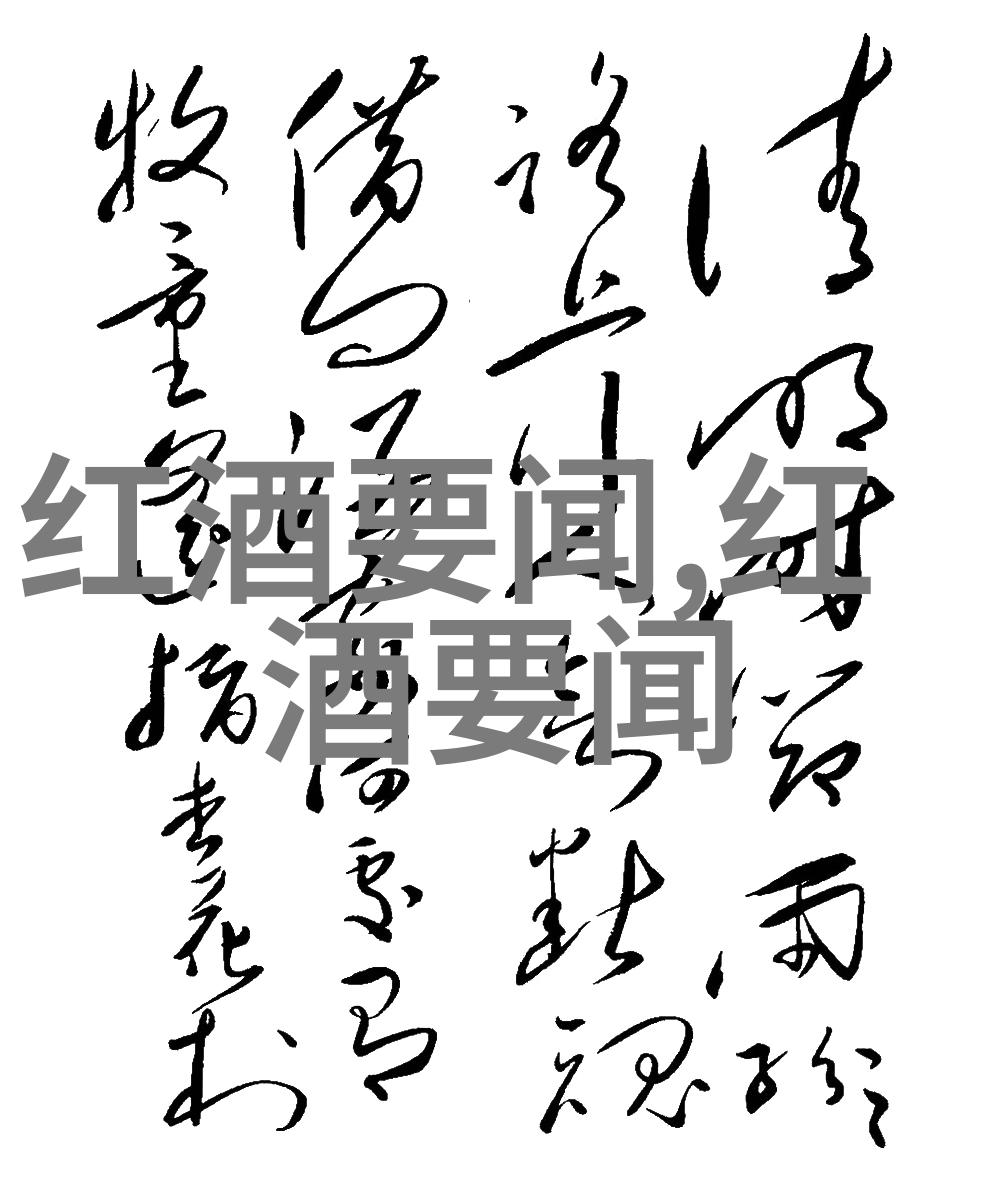 清明时节雨纷纷
路上行人欲断魂
借问酒家何处有
牧童遥指杏花村
红酒要闻,红
酒要闻